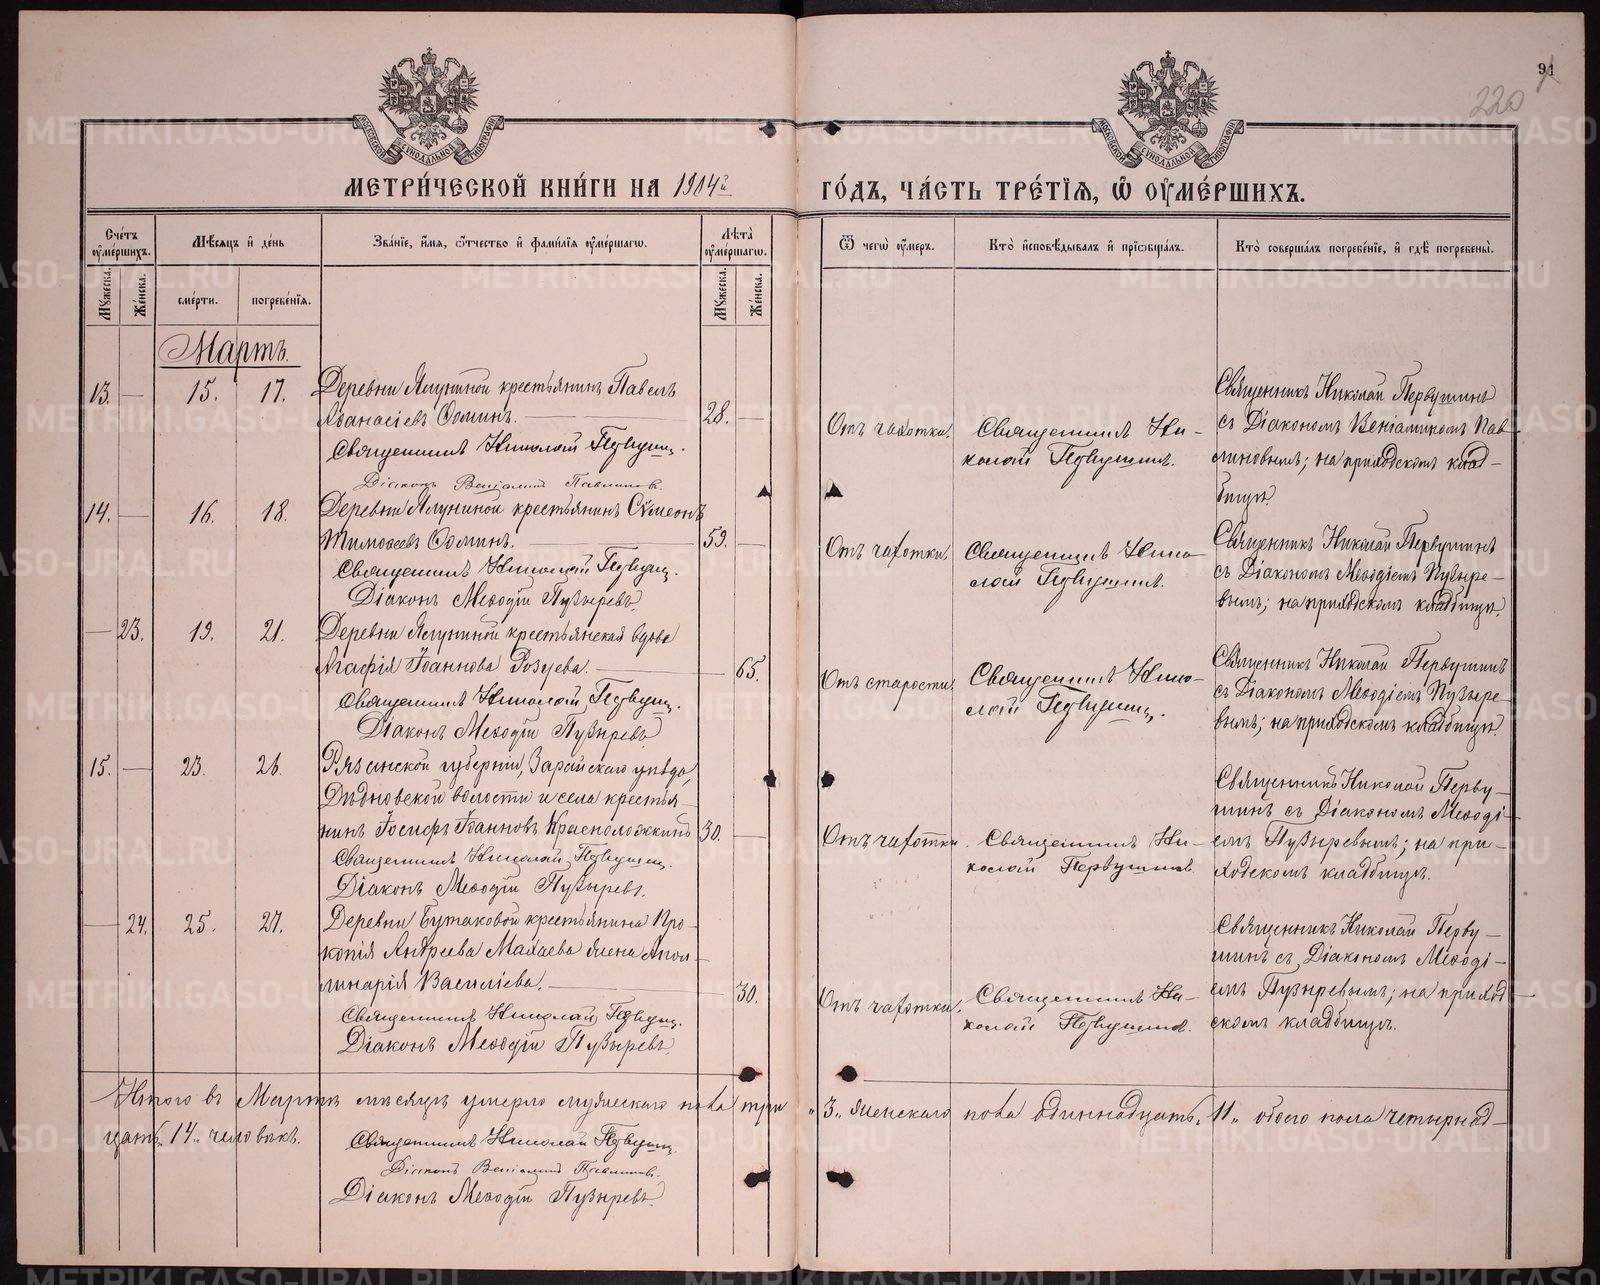 91
220
МЕТРИ́ЧЕСКОЙ КНИ́ГИ НА 1914й ГО́ДЪ, ЧА́СТЬ ТРЕ́ТІѦ, Ѿ ОУМЕ́РШИХЪ.
Сче́тъ оуме́ршихъ.
Мѣ́сѧцъ и҆ де́нь
Зва́нїе, и҆́мѧ, ѻ҆́тчество и҆ фами́лїѧ оуме́ршагѡ.
Лѣ́та оуме́ршагѡ.
Ѿ чегѡ̀ оу́меръ.
Кто̀ и҆сповѣ́дывалъ и҆ прїѡбща́лъ.
Кто̀ соверша́лъ погребе́нїе, и҆ гдѣ̀ погребены̀.
Мꙋ́жеска.
Же́нска.
сме́рти.
погребе́нїѧ.
Мꙋ́жеска.
Же́нска.
Мартъ.
13. — 15. 17. Деревни Ялуниной крестьянинъ Павелъ
Аѳанасіевъ Ѳоминъ. — 28. —
Священникъ Николай Первушинъ.
Діаконъ Веніаминъ Павлиновъ.
Отъ чахотки.
Священникъ Ни-
колай Первушинъ.
Священникъ Николай Первушинъ
съ Діакономъ Веніаминомъ Пав-
линовымъ; на приходскомъ клад-
бищѣ.
14. — 16. 18. Деревни Ялуниной крестьянинъ Сѵмеонъ
Тимоѳеевъ Ѳоминъ. — 59. —
Священникъ Николай Первушинъ.
Діаконъ Меѳодій Пузыревъ.
Отъ чахотки.
Священникъ Нико-
лай Первушинъ.
Священникъ Николай Первушинъ
съ Діакономъ Меѳодіемъ Пузыре-
вымъ; на приходскомъ кладбищѣ.
— 23. 19. 21. Деревни Ялуниной крестьянская вдова
Агафія Іоаннова Розуева. — — 65.
Священникъ Николай Первушинъ.
Діаконъ Меѳодій Пузыревъ.
Отъ старости.
Священникъ Нико-
лай Первушинъ.
Священникъ Николай Первушинъ
съ Діакономъ Меѳодіемъ Пузыре-
вымъ; на приходскомъ кладбищѣ.
15. — 23. 26. Рязанской губерніи, Зарайскаго уѣзда,
Дѣдновской волости и села крестья-
нинъ Іосифъ Іоанновъ Красноложкинъ 30. —
Священникъ Николай Первушинъ.
Діаконъ Меѳодій Пузыревъ.
Отъ чахотки.
Священникъ Ни-
колай Первушинъ
Священникъ Николай Перву-
шинъ съ Діакономъ Меѳоді-
емъ Пузыревымъ; на при-
ходскомъ кладбищѣ.
— 24. 25. 27. Деревни Бутаковой крестьянина Про-
копія Андреева Махаева жена Апол-
линарія Василіева. — — 30.
Священникъ Николай Первушинъ.
Діаконъ Меѳодій Пузыревъ.
Отъ чахотки.
Священникъ Ни-
колай Первушинъ.
Священникъ Николай Перву-
шинъ съ Діакономъ Меѳоді-
емъ Пузыревымъ; на приход-
скомъ кладбищѣ.
Итого въ Мартѣ мѣсяцѣ умерло мужескаго пола три „3„ женскаго пола одиннадцать „11„ обоего пола четырнад-
цать „14„ человѣкъ.
Священникъ Николай Первушинъ.
Діаконъ Веніаминъ Павлиновъ.
Діаконъ Меѳодій Пузыревъ.
METRIKI.GASO-URAL.RU